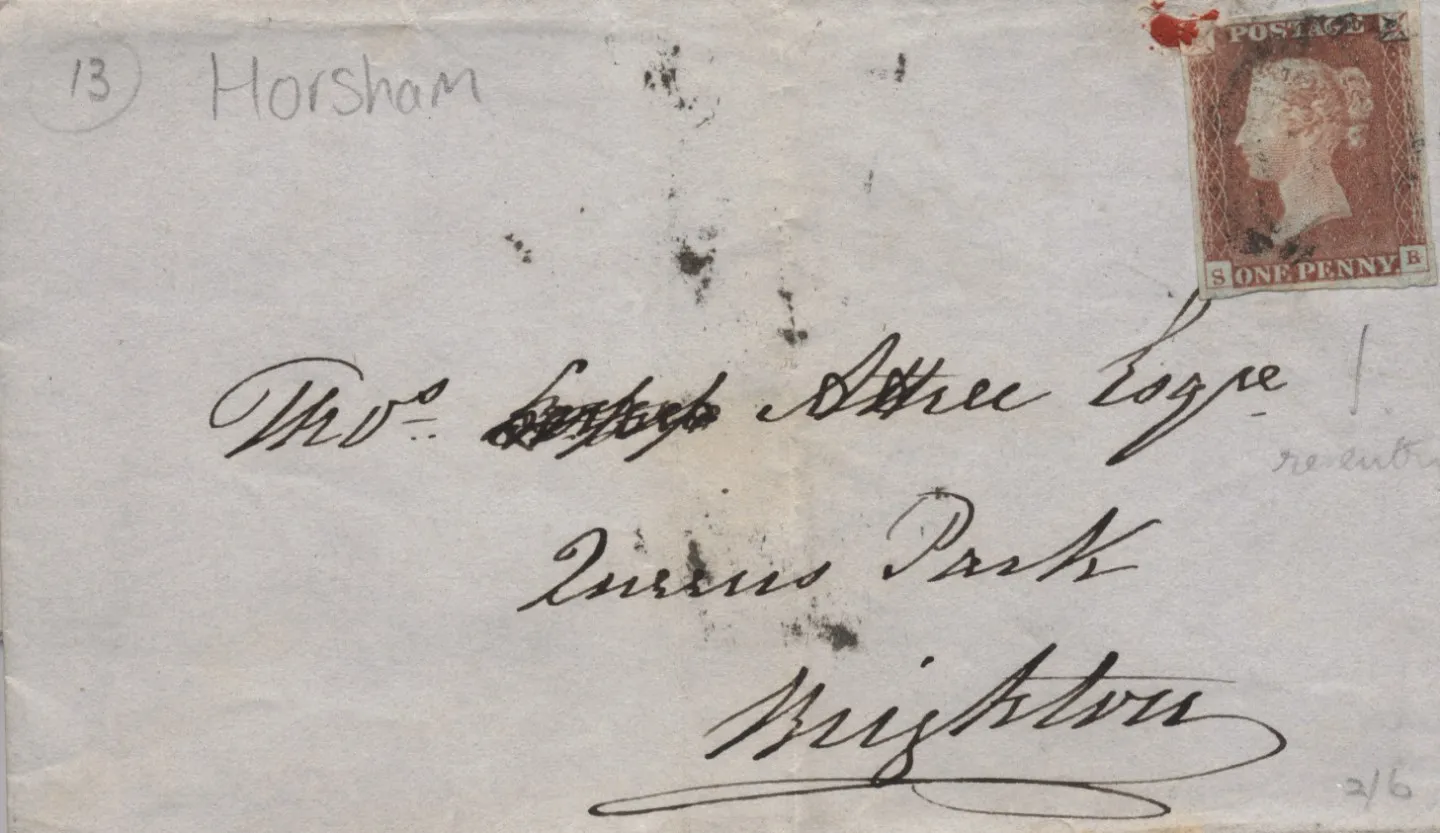 13 Horsham
POSTAGE
S ONE PENNY R
Thos. Attree Esqre
re-entry
Queens Park
Brighton
2/6